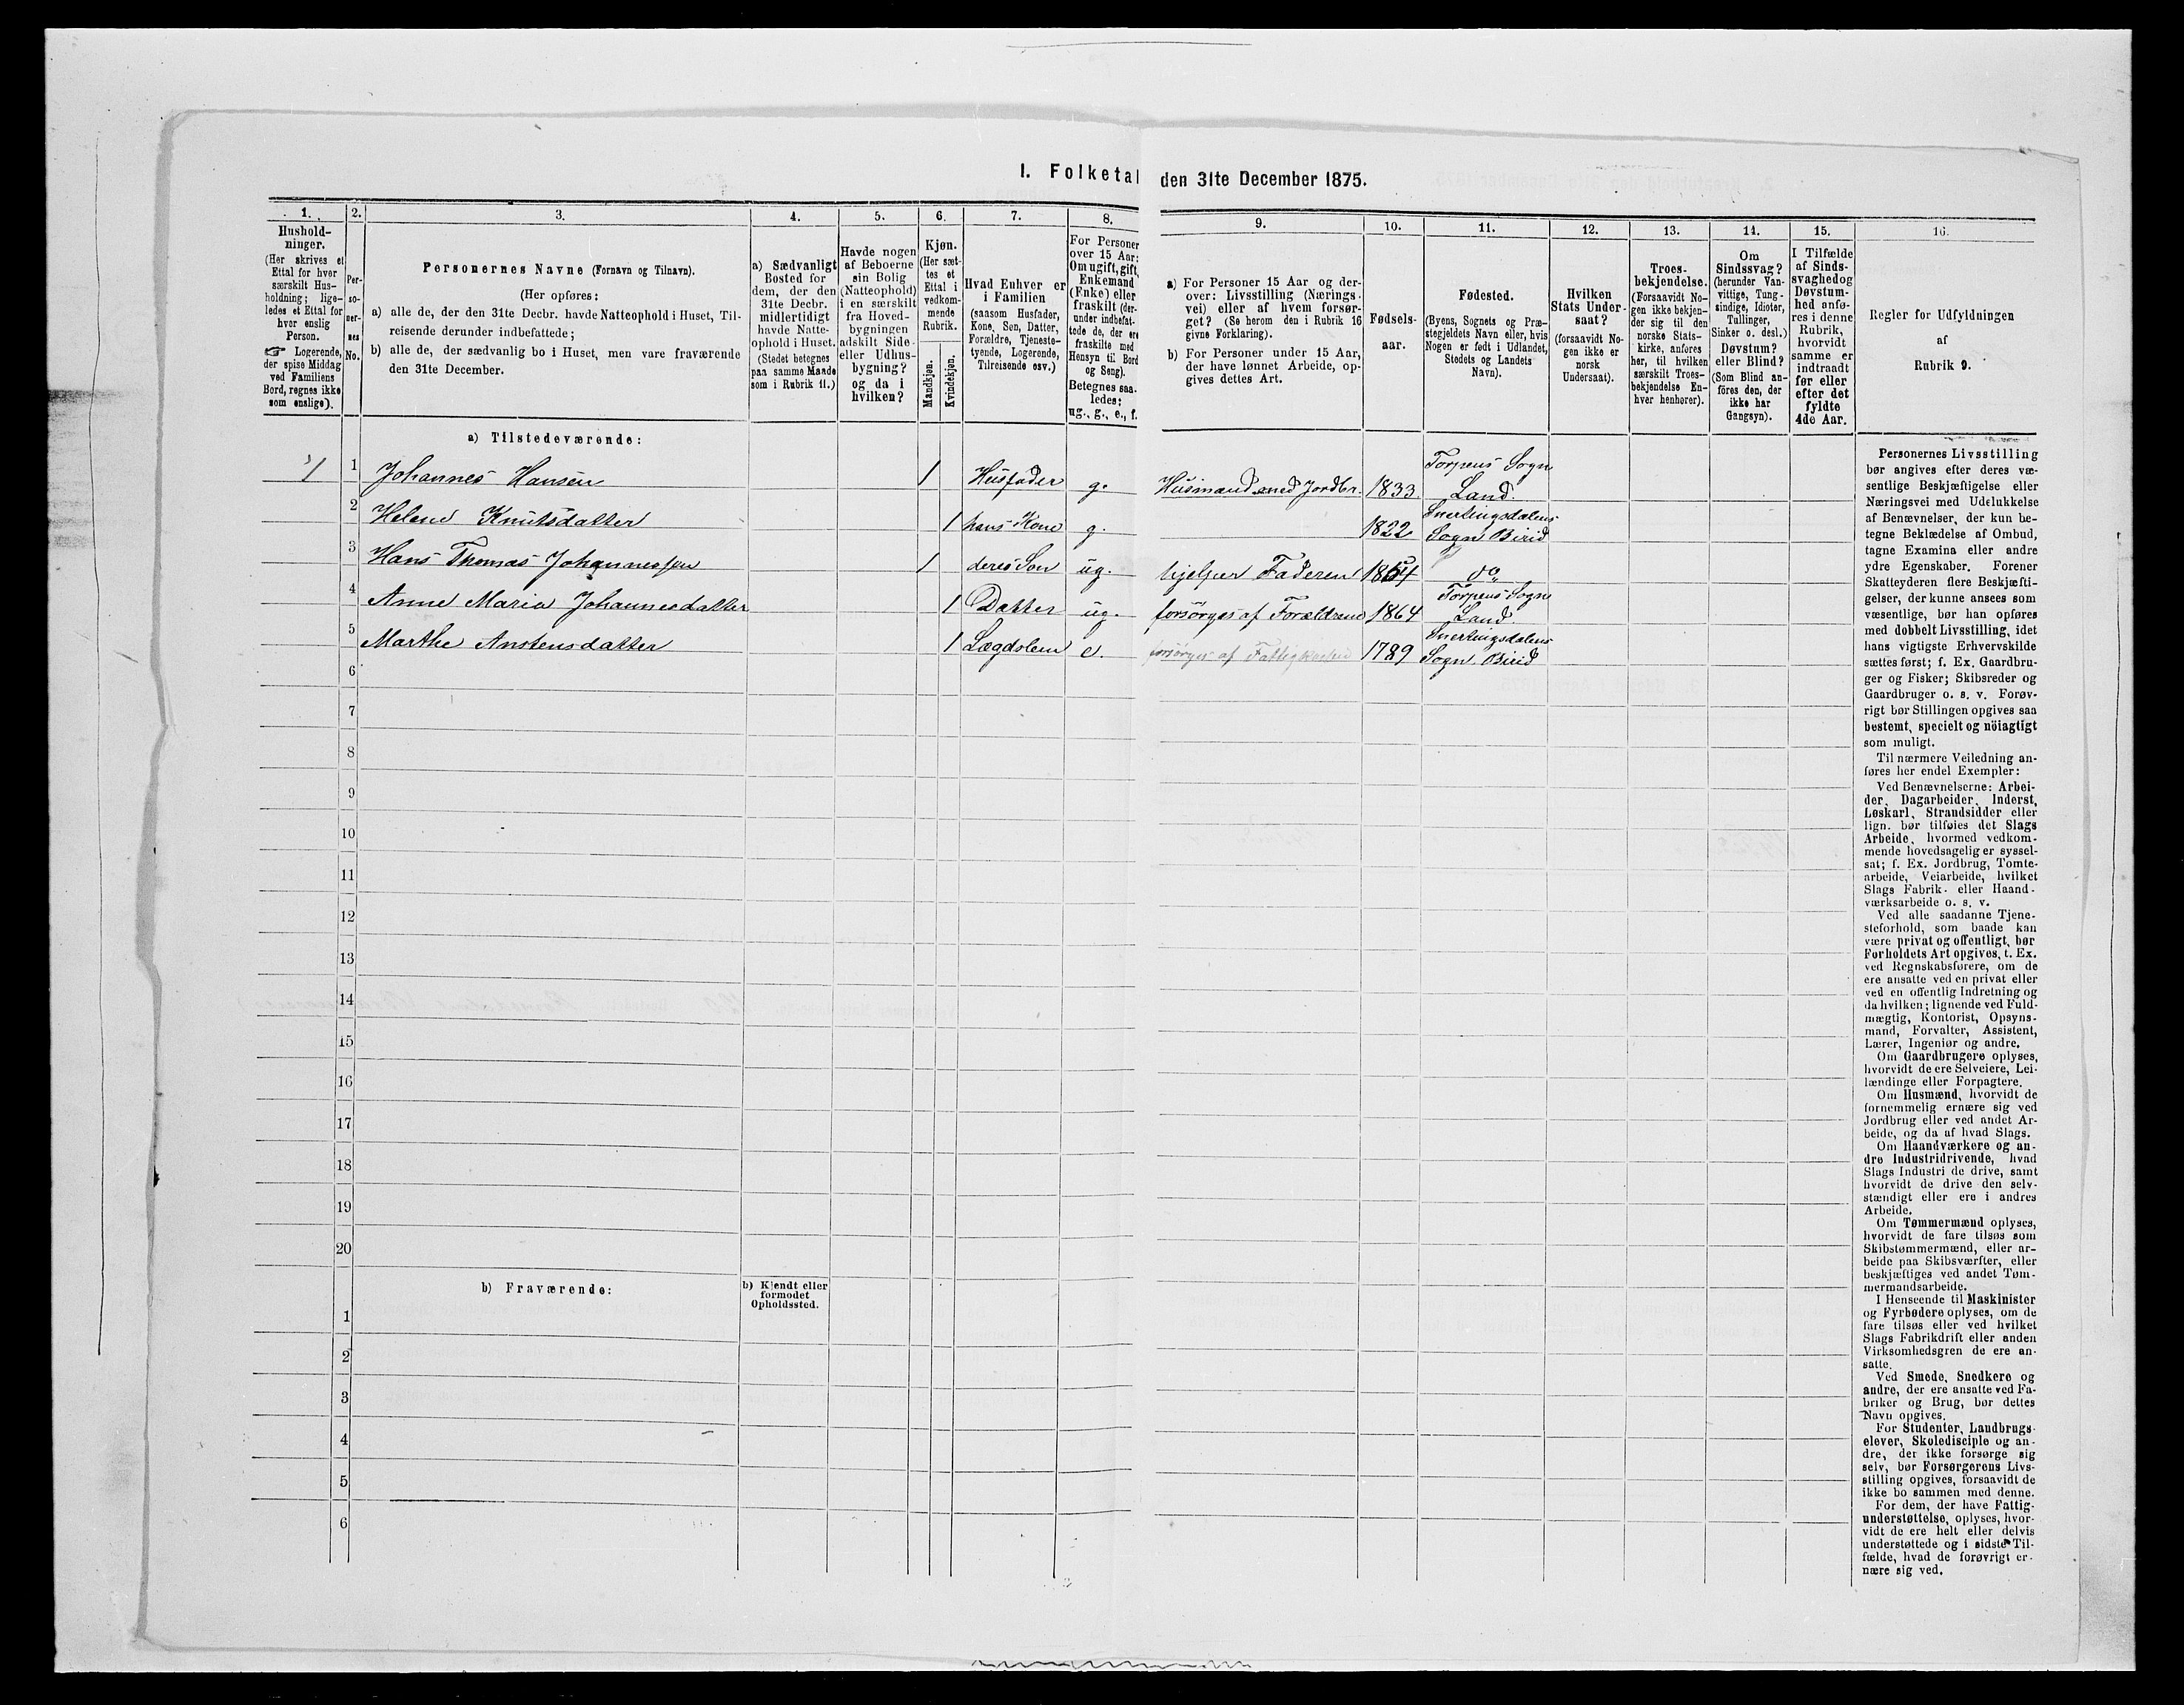 I. Folketal den 31te December 1875.
1.
Hushold-
ninger.
(Her skrives et
Ettal for hver
særskilt Hus-
holdning; lige-
ledes et Ettal for
hver enslig
Person.
☞ Logerende,
der spise Middag
ved Familiens
Bord, regnes ikke
som enslige).
2.
Per-
so-
ner-
nes
No.
3.
Personernes Navne (Fornavn og Tilnavn).
(Her opføres:
a) alle de, der den 31te Decbr. havde Natteophold i Huset, Til-
reisende derunder indbefattede;
b) alle de, der sædvanlig bo i Huset, men vare fraværende
den 31te December.
4.
a) Sædvanligt
Bosted for
dem, der den
31te Decbr.
midlertidigt
havde Natte-
ophold i Huset.
(Stedet betegnes
paa samme Maade
som i Rubrik 11.)
5.
Havde nogen
af Beboerne
sin Bolig
(Natteophold)
i en særskilt
fra Hoved-
bygningen
adskilt Side-
eller Udhus-
bygning?
og da i
hvilken?
6.
Kjøn.
(Her sæt-
tes et
Ettal i
vedkom-
mende
Rubrik.
Mandkjøn.
Kvindekjøn.
7.
Hvad Enhver er
i Familien
(saasom Husfader,
Kone, Søn, Datter,
Forældre, Tjeneste-
tyende, Logerende,
Tilreisende osv.)
8.
For Personer
over 15 Aar:
Om ugift, gift,
Enkemand
(Enke) eller
fraskilt (der-
under indbefat-
tede de, der ere
fraskilte med
Hensyn til Bord
og Seng).
Betegnes saa-
ledes:
ug., g., e., f.
9.
a) For Personer 15 Aar og der-
over: Livsstilling (Nærings-
vei) eller af hvem forsør-
get? (Se herom den i Rubrik 16
givne Forklaring).
b) For Personer under 15 Aar,
der have lønnet Arbeide, op-
gives dettes Art.
10.
Fødsels-
aar.
11.
Fødested.
(Byens, Sognets og Præ-
stegjeldets Navn eller, hvis
Nogen er født i Udlandet,
Stedets og Landets
Navn).
12.
Hvilken
Stats Under-
saat?
(forsaavidt No-
gen ikke er
norsk
Undersaat).
13.
Troes-
bekjendelse.
(Forsaavidt No-
gen ikke bekjen-
der sig til den
norske Stats-
kirke, anføres
her, til hvilken
særskilt Troes-
bekjendelse En-
hver henhører).
14.
Om
Sindssvag?
(herunder Van-
vittige, Tung-
sindige, Idioter,
Tullinger,
Sinker o. desl.)
Døvstum?
eller Blind?
(Som Blind an-
föres den, der
ikke har
Gangsyn).
15.
I Tilfælde
af Sinds-
svaghed og
Døvstum-
hed anfø-
res i denne
Rubrik,
hvorvidt
samme er
indtraadt
før eller
efter det
fyldte
4de Aar.
16.
Regler for Udfyldningen
af
Rubrik 9.
a) Tilstedeværende:
1 1 Johannes Hansen 1 Husfader g. Husmand med Jordbr. 1833 Torpens Sogn
Land.
2 Helene Knutsdatter 1 hans Kone g. 1822 Snertingsdalens
Sogn Birid
3 Hans Thomas Johannessen 1 deres Søn ug. hjelper Faderen do
4 Anne Maria Johannesdatter 1 Datter ug. forsörges af Foræeldrene 1864 Torpens Sogn
Land.
5 Marthe Anstensdatter 1 Lægdslem e. forsörges af Fattigkassen 1789 Snertingsdalens
Sogn Birid
6
7
8
9
10
11
12
13
14
15
16
17
18
19
20
b) Fraværende:
b) Kjendt eller
formodet
Opholdssted.
1
2
3
4
5
6
Personernes Livsstilling
bør angives efter deres væ-
sentlige Beskjæftigelse eller
Næringsvei med Udelukkelse
af Benævnelser, der kun be-
tegne Beklædelse af Ombud,
tagne Examina eller andre
ydre Egenskaber. Forener
Skatteyderen flere Beskjæfti-
gelser, der kunne ansees som
væsentlige, bør han opføres
med dobbelt Livsstilling, idet
hans vigtigste Erhvervskilde
sættes først; f. Ex. Gaardbru-
ger og Fisker; Skibsreder og
Gaardbruger o. s. v. Forøv-
rigt bør Stillingen opgives saa
bestemt, specielt og nöiagtigt
som muligt.
Til nærmere Veiledning an-
føres her endel Exempler:
Ved Benævnelserne: Arbei-
der, Dagarbeider, Inderst,
Løskarl, Strandsidder eller
lign. bør tilføies det Slags
Arbeide, hvormed vedkom-
mende hovedsagelig er syssel-
sat; f. Ex. Jordbrug, Tomte-
arbeide, Veiarbeide, hvilket
Slags Fabrik- eller Haand-
værksarbeide o. s. v.
Ved alle saadanne Tjene-
steforhold, som baade kan
være privat og offentligt, bør
Forholdets Art opgives, t. Ex.
ved Regnskabsførere, om de
ere ansatte ved en privat eller
ved en offentlig Indretning og
da hvilken; lignende ved Fuld-
mægtig, Kontorist, Opsyns-
mand, Forvalter, Assistent,
Lærer, Ingeniør og andre.
Om Gaardbrugere oplyses,
hvorvidt de ere Selveiere, Lei-
lændinge eller Forpagtere.
Om Husmænd, hvorvidt de
fornemmelig ernære sig ved
Jordbrug eller ved andet Ar-
beide, og da af hvad Slags.
Om Haandværkere og an-
dre Industridrivende, hvad
Slags Industri de drive, samt
hvorvidt de drive den selv-
stændigt eller ere i andres
Arbeide.
Om Tømmermænd oplyses,
hvorvidt de fare tilsøs som
Skibstømmermænd, eller ar-
beide paa Skibsværfter, eller
beskjæftiges ved andet Tøm-
mermandsarbeide.
I Henseende til Maskinister
og Fyrbødere oplyses, om de
fare tilsøs eller ved hvilket
Slags Fabrikdrift eller anden
Virksomhedsgren de ere an-
satte.
Ved Smede, Snedkere og
andre, der ere ansatte ved Fa-
briker og Brug, bør dettes
Navn opgives.
For Studenter, Landbrugs-
elever, Skoledisciple og an-
dre, der ikke forsørge sig
selv, bør Forsørgerens Livs-
stilling opgives, forsaavidt de
ikke bo sammen med denne.
For dem, der have Fattig-
understøttelse, oplyses, hvor-
vidt de ere helt eller delvis
understøttede og i sidste Til-
fælde, hvad de forøvrigt er-
nære sig ved.